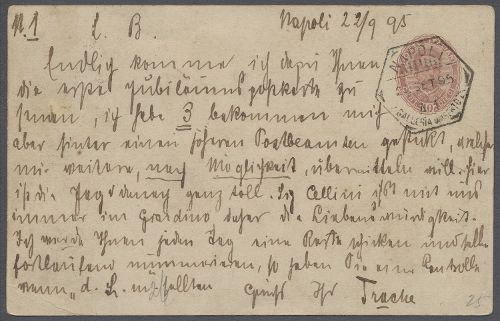 N. 1 L. B. Napoli 22/9 95
Endlich komme ich dazu Ihnen
die erste Jubiläumspostkarte zu
senden, ich habe 3 bekommen mich
aber hinter einen höheren Postbeamten gesteckt, welcher
mir weitere, nach Möglichkeit, übermitteln will. Hier
ist die Jagd danach ganz toll. Sig Cellini ist mit uns
immer im daher die Liebenswürdigkeit.
Ich werde Ihnen jeden Tag eine Karte schicken und selbe
fortlaufend nummerieren, so haben Sie eine Controlle
wenn d. sollten Gruss Ihr Trache
NAPOLI
SET 95
GALLERIA
25